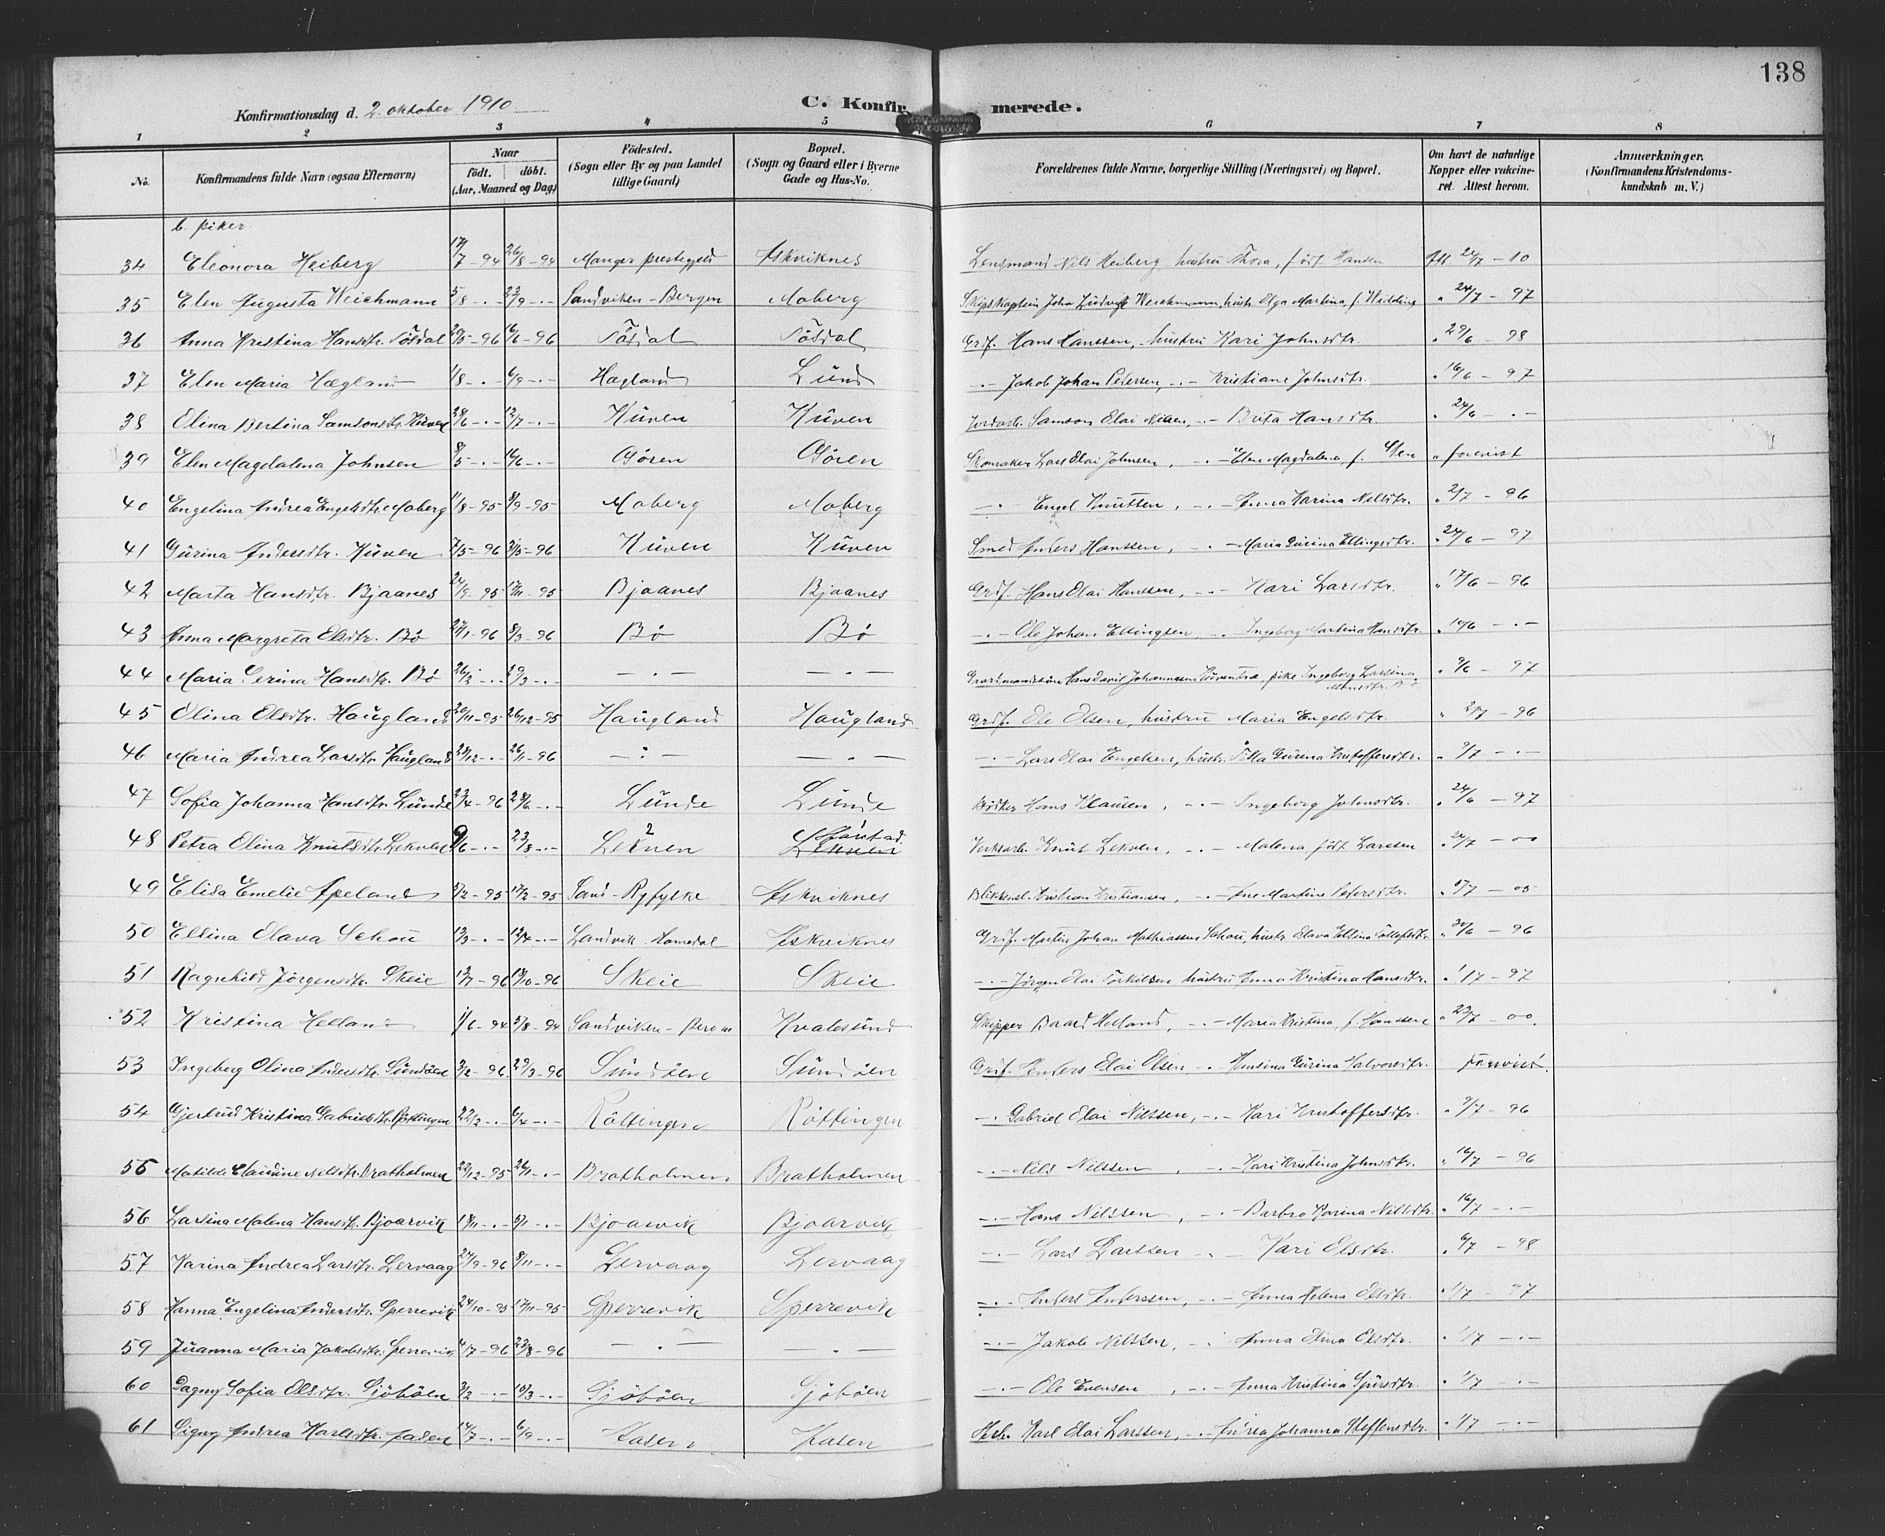 138
Konfirmationsdag d. 2. oktober 1910
C. Konfirmerede.
1 2 3 4 5 6 7 8
No. Konfirmandens fulde Navn (ogsaa Efternavn) Naar födt. döbt. (Aar, Maaned og Dag) Födested. (Sogn eller By og paa Landet tillige Gaard) Bopæl. (Sogn og Gaard eller i Byerne Gade og Hus-No. Forældrenes fulde Navne, borgerlige Stilling (Næringsvei) og Bopæl. Om havt de naturlige Kopper eller vakcineret. Attest herom. Anmærkninger. (Konfirmandens Kristendomskundskab m. V.)
b. piker.
34 Eleonora Heiberg 17/7-94 26/8-94 Manger prestegjeld Askviknes Lensmand Nils Heiberg, hustru Thora, født Hansen 10
35 Elen Augusta Weichmann 5/8-.- Sandviken-Bergen Moberg Skipskaptein John Ludvig Weichmann, hustr. Olga Martina, f. 24/7-97
36 Anna Kristina Hansdtr. Tösdal Tösdal Tösdal Grdf. Hans Hanssen, hustru Kari Johnsdtr. 29/6-98
37 Elen Maria Hægland 1/8-.- 6/9-.- Hægland Lund -.- Jakob Johan Petersen, -.- Kristiane Johnsdtr. 16/6-97
38 Elina Bertina Samsonsdtr. Kuven 12/7-.- Kuven Kuven Samson Elai Nilsen, -.- Brita Hansdtr. 24/6-.-
39 Elen Magdalena Johnsen 8/5-.- Osören Osören Skomaker Lars Elai Johnsen, -.- Elen Magdalena, f. forevist
40 Engelina Andrea Engelsdtr. Moberg 11/8-95 8/9-95 Moberg Moberg -.- Engel Knutsen, -.- Anna Karina Nilsdtr. 2/7-96
41 Gurina Andersdtr. Kuven 7/5-96 31/5-96 Kuven Kuven Smed Anders Hanssen, -.- Maria Gurina Ellingsdtr. 24/6-97
42 Marta Hansdtr. Bjaanes 24/9-95 17/11-95 Bjaanes Bjaanes Grdf. Hans Elai Hanssen, -.- Kari Larsdtr. 17/6-96
43 Anna Margreta Olsdtr. Bö 27/1-96 8/3-96 Bö Bö -.- Ole Johan Ellingsen, -.- Ingeborg Martina Hansdtr. 16/6-.-
44 Maria Serina Hansdtr. Bö 26/2-.- 29/3-.- -.- -.- Gaardmandssön Hans David Johannessen pike Ingeborg Larsina 9/6-97
45 Olina Olsdtr. Haugland 20/11-95 26/12-95 Haugland Haugland Grdf. Ole Olsen, hustru Maria Engelsdtr. 2/7-96
46 Maria Andrea Larsdtr. Haugland 28/12-.- 26/1-96 -.- -.- -.- Lars Elai Engelsen, hustr. Gurina Kristoffersdtr. 9/7-.-
47 Sofia Johanna Hansdtr. Lunde 23/4-96 -.- Lunde Lunde Bödker Hans Klausen, -.- Ingeborg Johnsdtr. 24/6-97
48 Petra Olina Knutsdtr. Lekven 9/6-.- 23/8-.- Lekven Lekven Knut Lekven, -.- Malena född Larssen 24/7-00
49 Elida Emelie Apeland 5/2-95 17/2-95 Sand-Ryfylke Askviknes Blikkensl. Kristian Kristiansen, -.- Ane Martine Petersdtr. 05
50 Ellina Olava Schou 13/3-.- -.- Landvik-Homedal Askviknes Grdf. Martin Johan Mathiassen Schou, hustr. Olava Ellina 30/6-96
51 Ragnhild Jörgensdtr. Skeie 96 96 Skeie Skeie -.- Jörgen Elai Torkilsen hustru Anna Kristina Hansdtr. 1/7-97
52 Kristina Helland 1/6-94 5/8-94 Sandviken-Bergen Kvalesund Skipper Baard Helland, -.- Maria Kristina, f. Hanssen 23/7-00.
53 Ingeborg Olina Andersdtr. Sundöen 96 29/3-96 Sundöen Sundöen Grdf. Anders Elai Olsen, -.- Ansina Gurina Halvorsdtr. forevist.
54 Gjertrud Kristina Gabrielsdtr. Röttingen 22/2-.- 6/4-.- Röttingen Röttingen -.- Gabriel Elai Nilssen, -.- Kari Kristoffersdtr. 9/7-96
55 Matilde Nilsdtr. Bratholmen 12-95 26/1-.- Bratholmen Bratholmen -.- Nils Nilssen, -.- Kari Kristina Johnsdtr. 16/7-96
56 Larsina Malena Hansdtr. Bjoarvik Bjoarvik Bjoarvik -.- Hans Nilssen, -.- Barbro Karina Nilsdtr. 16/7-.-
57 Karina Andrea Larsdtr. Lervaag 27/9-96 8/11-.- Lervaag Lervaag -.- Lars Larssen -.- Kari Olsdtr. 6/7-98
58 Hanna Engelina Andersdtr. Sperrevik 24/10-95 17/11-95 Sperrevik Sperrevik -.- Anders Anderssen, -.- Anna Helena Olsdtr. 1/7-97
59 Juanna Maria Jakobsdtr. Sperrevik 4/7-96 23/8-96 -.- -.- -.- Jakob Nilssen, -.- Anna Olina Olsdtr. 1/7-.-
60 Dagny Sofia Olsdtr. Sjöböen -.- -.- Sjöböen Sjöböen -.- Ole Evensen, -.- Anna Kristina Sjursdtr. 1/7-.-
61 Signy Andrea Karlsdtr. Aasen 14/7-.- 6/9-.- Aasen Aasen Karl Elai Larssen, -.- Andrea Johanna Steffensdtr. 1/7-.-